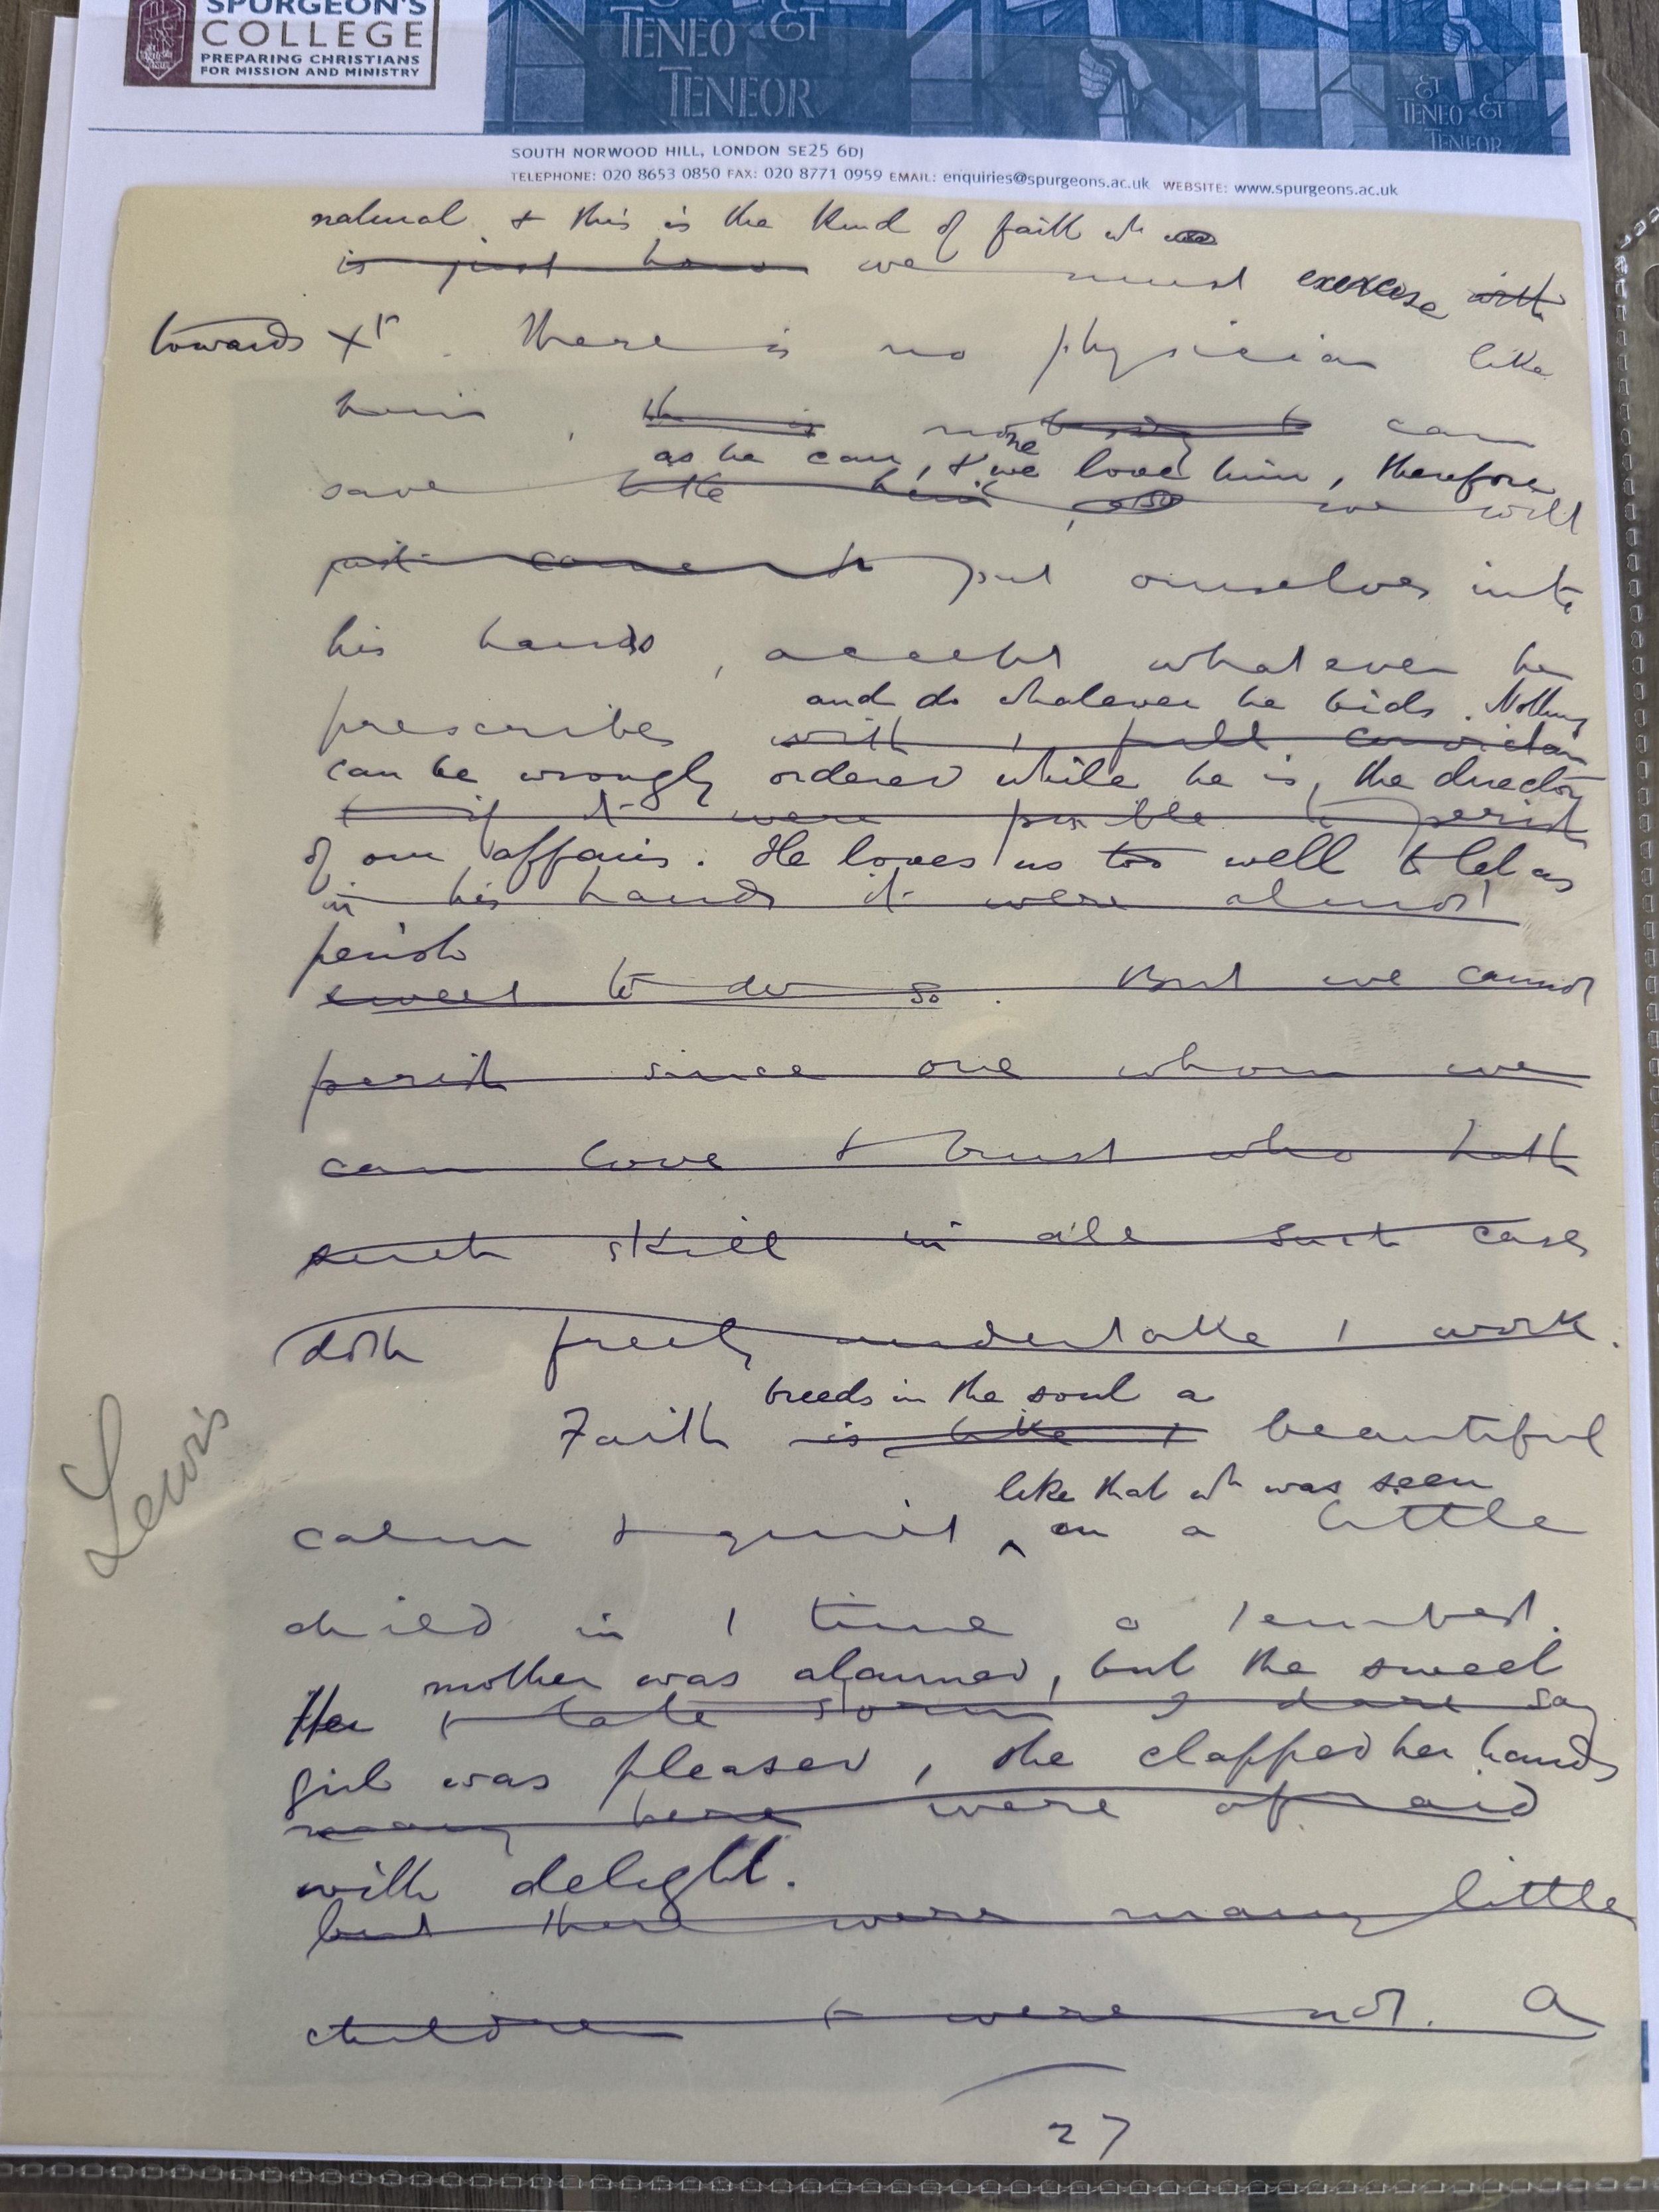 SPURGEON'S
COLLEGE
PREPARING CHRISTIANS
FOR MISSION AND MINISTRY
TENEO ET
TENEOR
ET
TENEO ET
TENEOR
SOUTH NORWOOD HILL, LONDON SE25 6DJ
TELEPHONE: 020 8653 0850 FAX: 020 8771 0959 EMAIL: enquiries@spurgeons.ac.uk WEBSITE: www.spurgeons.ac.uk
natural & this is the kind of faith wh
is just how we must exercise with
towards Xt. There is no physician like
him, none can
as he can, & we love him, therefore
save like him we will
put ourselves into
his hands, accept whatever he
and do whatever he bids. Nothing
prescribes with / full conviction
can be wrongly ordered while he is the director
t if it were possible to perish
of our affairs. He loves us too well to let us
in his hands it were almost
perish
sweet to do so. But we cannot
perish since one whom we
can love & trust who hath
such skill in all such cases
doth freely undertake / work.
breeds in the soul a
Faith is like / beautiful
like that wh was seen
calm & quiet ^ on a little
child in / time o / tempest.
mother was alarmed, but the sweet
Her / late storm I dare say
girl was pleased, she clapped her hands
many here were afraid
with delight.
but there were many little
children t were not. A
27
Lewis